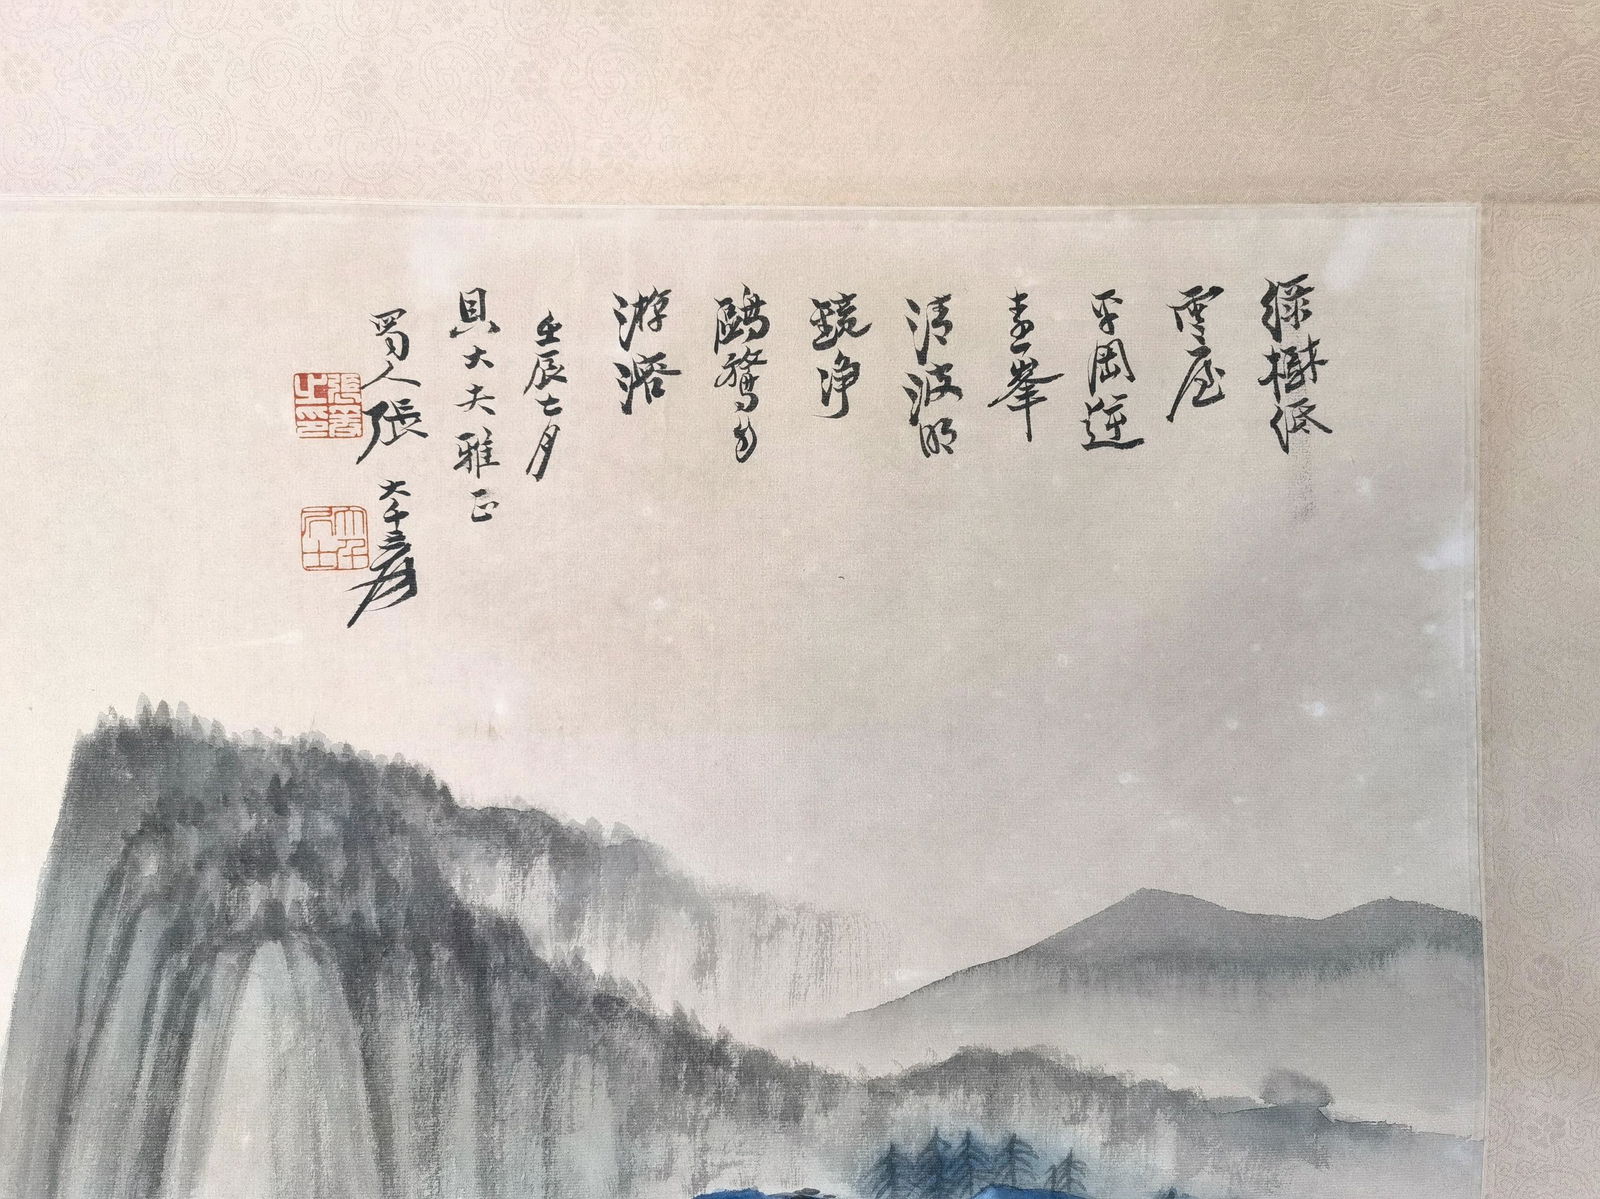 綠樹低
雲座
平岡遊
素峯
清波明
鏡淨
鷗鷺自
游澘
壬辰七月
貝大夫雅正
蜀人張大千爰
張爰之印
大千居士